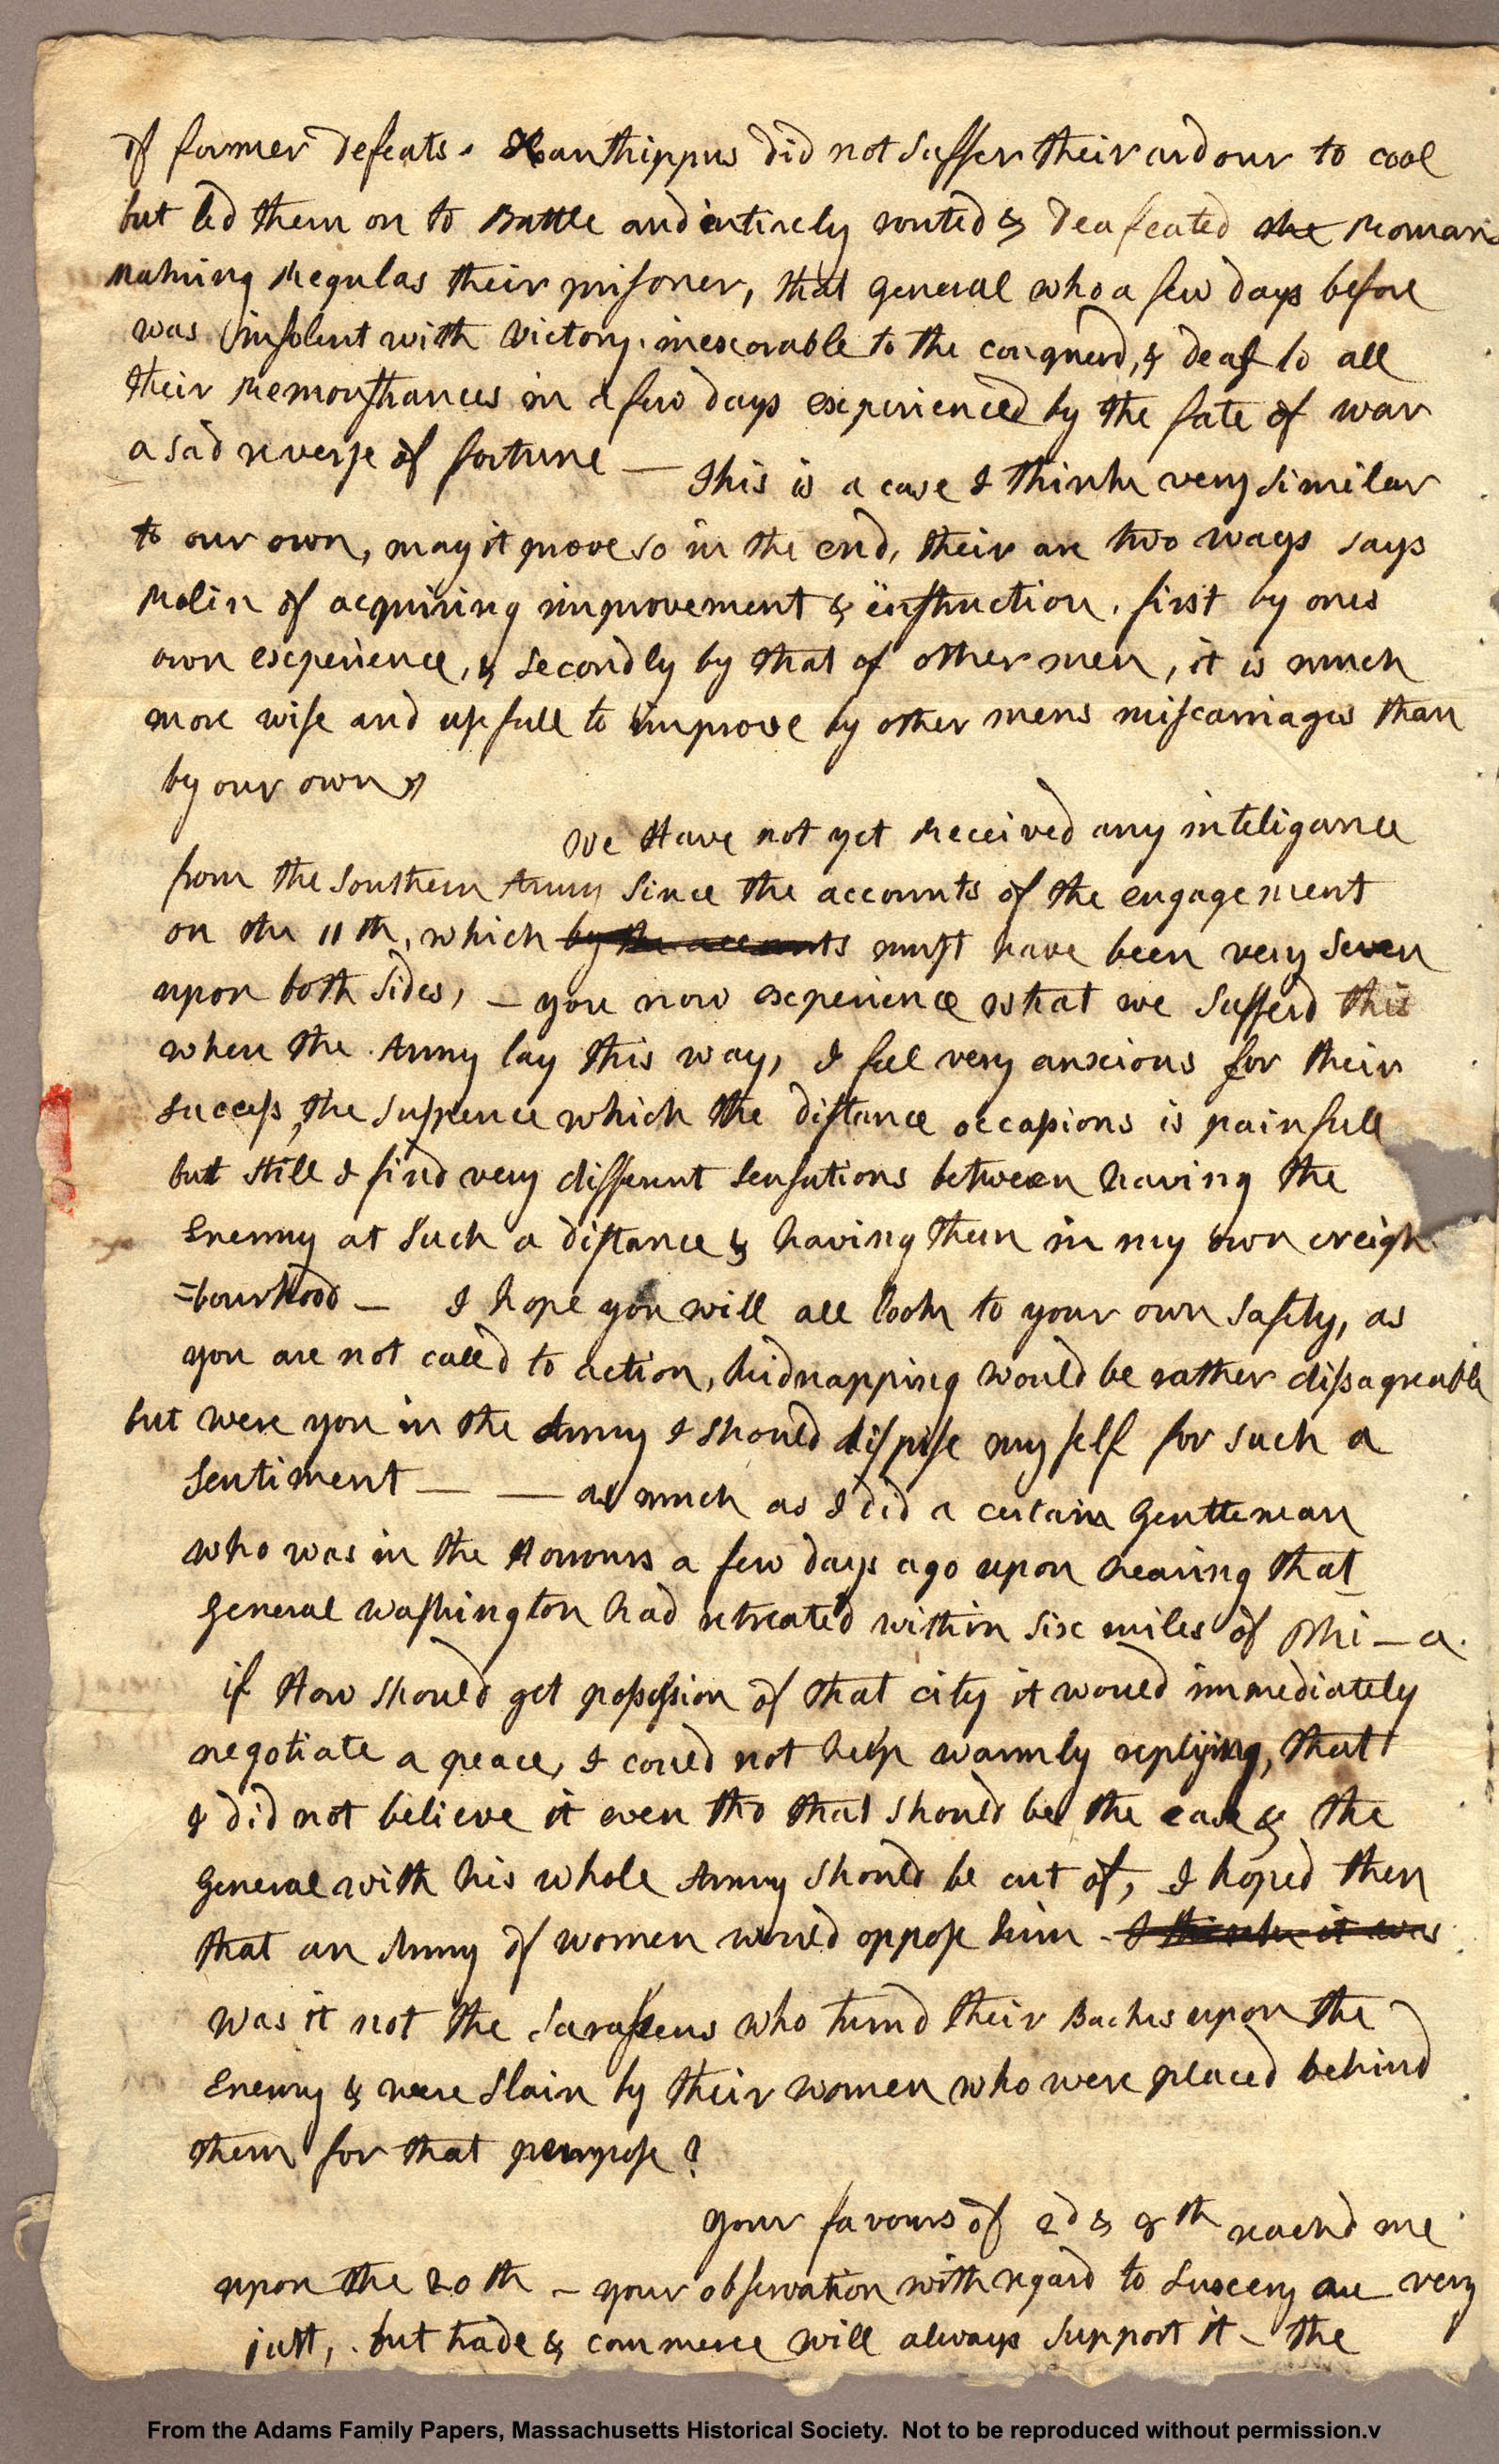 of former defeats. Xanthippus did not suffer their ardour to cool
but led them on to Battle and intirely routed & deafeated the Romans
making Regulas their prisoner, that general who a few days before
was insolent with victory. inexorable to the conquerd, & deaf to all
their Remonstrances in a few days experienced by the fate of war
a sad reverse of fortune —
This is a case I think very similar
to our own, may it prove so in the end, their are two ways says
Rolin of acquiring improvement & instruction, first by ones
own experience, & secondly by that of other men, it is much
more wise and usefull to improve by other mens miscarriages than
by our own.
We Have not yet Received any inteligance
from the Southern Army Since the accounts of the engagement
on the 11th, which by the accounts must have been very severe
upon both sides, — you now experience what we sufferd
when the Army lay this way, I feel very anxious for their
success, the suspence which the distance occasions is painfull
but still I find very different sensations between having the
Enemy at such a distance & having them in my own neigh
=bourhood — I hope you will all look to your own safety, as
you are not calld to action, kidnapping would be rather dissagreable
but were you in the Army I should dispise myself for such a
sentiment — — as much as I did a certain Gentleman
who was in the Horrours a few days ago upon hearing that
General Washington had retreated within six miles of Phi—a.
if How should get possession of that city it would immediately
negotiate a peace, I could not help warmly replying, that
I did not believe it even tho that should be the case & the
General with his whole Army should be cut of, I hoped then
that an Army of women would oppose him - I think it was
was it not the Sarasens who turnd their Backs upon the
Enemy & were slain by their women who were placed behind
them for that purpose?
your favours of 2d & 8th reachd me
upon the 20th — your observation with regard to Luxcery are very
just, but trade & commerce will always support it — the
From the Adams Family Papers, Massachusetts Historical Society. Not to be reproduced without permission.v